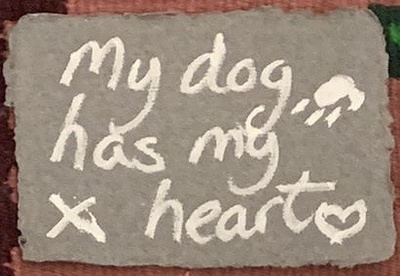 My dog
has my
x heart